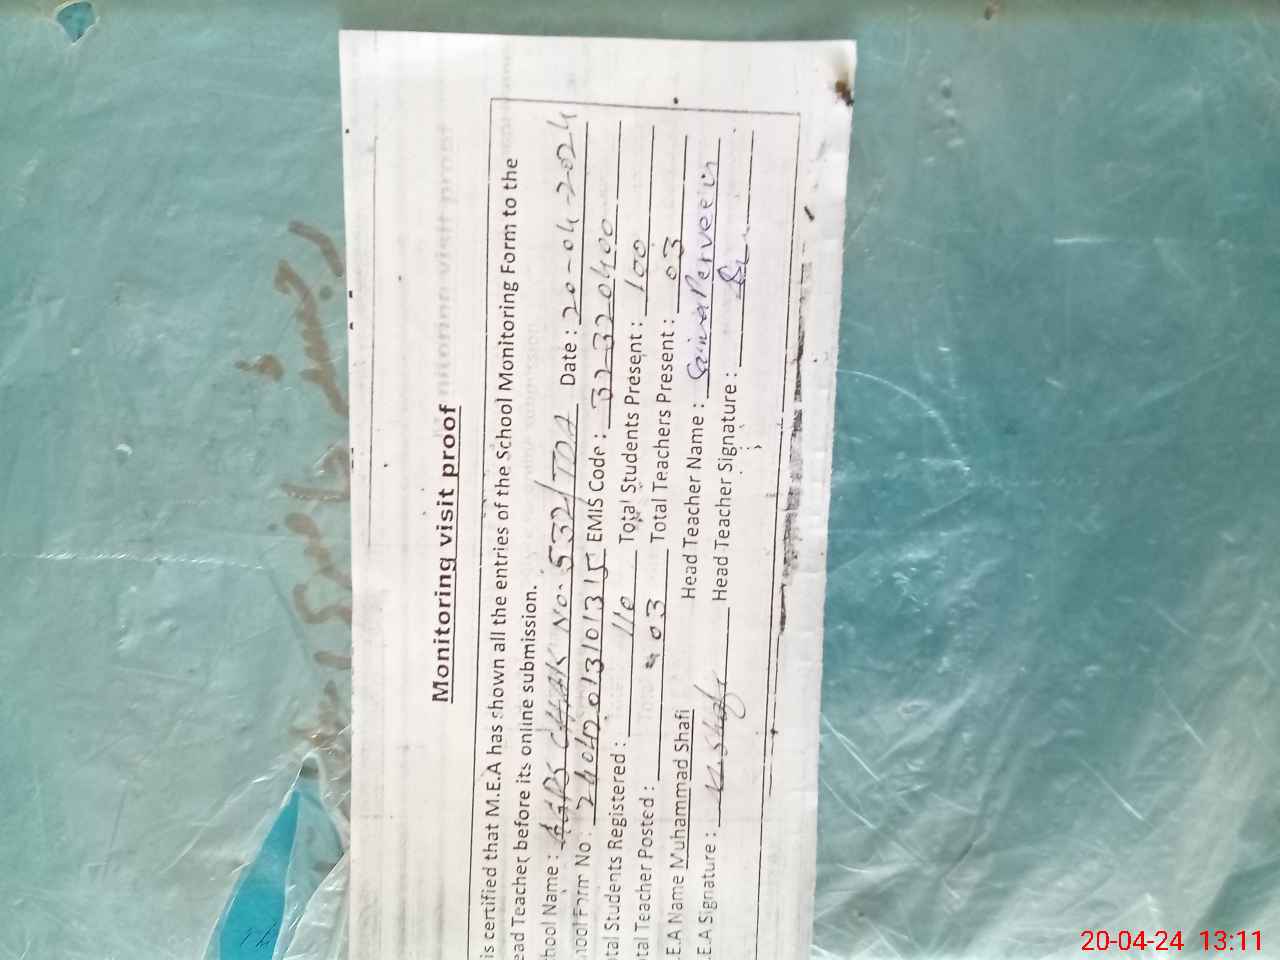 Monitoring visit proof
is certified that M.E.A has shown all the entries of the School Monitoring Form to the
ead Teacher before its online submission.
hool Name : GGPS CHAK No. 532/TDA Date : 20-04-2024
hool Form No : 24042013101315 EMIS Code : 32320400
tal Students Registered : 110 Total Students Present : 100
tal Teacher Posted : 03 Total Teachers Present : 03
E.A Name Muhammad Shafi Head Teacher Name : Saima Perveen
E.A Signature : M.Shafi Head Teacher Signature :
رجسٹر
20-04-24 13:11